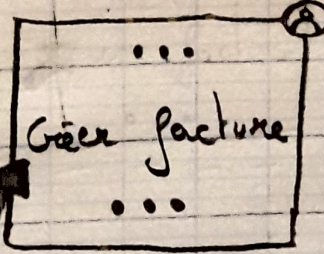 ...
Créer facture
...